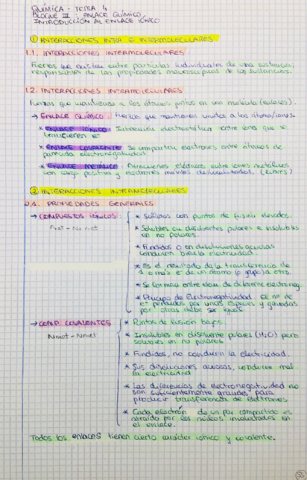 QUÍMICA - TEMA 4
BLOQUE II: ENLACE QUÍMICO,
INTRODUCCIÓN AL ENLACE IÓNICO
① INTERACCIONES INTRA E INTERMOLECULARES
1.1. INTERACCIONES INTERMOLECULARES
Fuerzas que existen entre partículas individuales de una sustancia,
responsables de las propiedades macroscópicas de las sustancias.
1.2. INTERACCIONES INTRAMOLECULARES
Fuerzas que mantienen a los átomos juntos en una molécula (enlaces)
→ ENLACE QUÍMICO: fuerzas que mantienen unidos a los átomos/iones.
* ENLACE IÓNICO: Interacción electrostática entre iones que se
transfieren e⁻
* ENLACE COVALENTE: Se comparten electrones entre átomos de
parecida electronegatividad.
* ENLACE METÁLICO: Atracciones elásticas entre iones metálicos
con carga positiva y electrones móviles deslocalizados.
② INTERACCIONES INTERMOLECULARES
2.1. PROPIEDADES GENERALES
→ COMPUESTOS IÓNICOS:
* Sólidos con puntos de fusión elevados.
* Solubles en disolventes polares e insolubles
en no polares.
* Fundidos o en disoluciones acuosas
conducen bien la electricidad.
* Es el resultado de la transferencia de
1 o más e⁻ de un átomo o grupo a otro.
* Se forman entre elem. de diferente electroneg.
* Principio de Electronegatividad:
e⁻ perdidos por unas especies y ganados
por otras debe ser igual
→ COMP. COVALENTES
* Puntos de fusión bajos.
* Insolubles en disolvente polares (H₂O) pero
solubles en no polares.
* Fundidos, no conducen la electricidad.
* Sus disoluciones acuosas, conducen mal
la electricidad
* Las diferencias de electronegatividad no
son suficientemente grandes para
producir transferencia de electrones
* Cada electrón de un par compartido es
atraído por los núcleos involucrados en
el enlace.
Todos los enlaces tienen cierto carácter iónico y covalente.